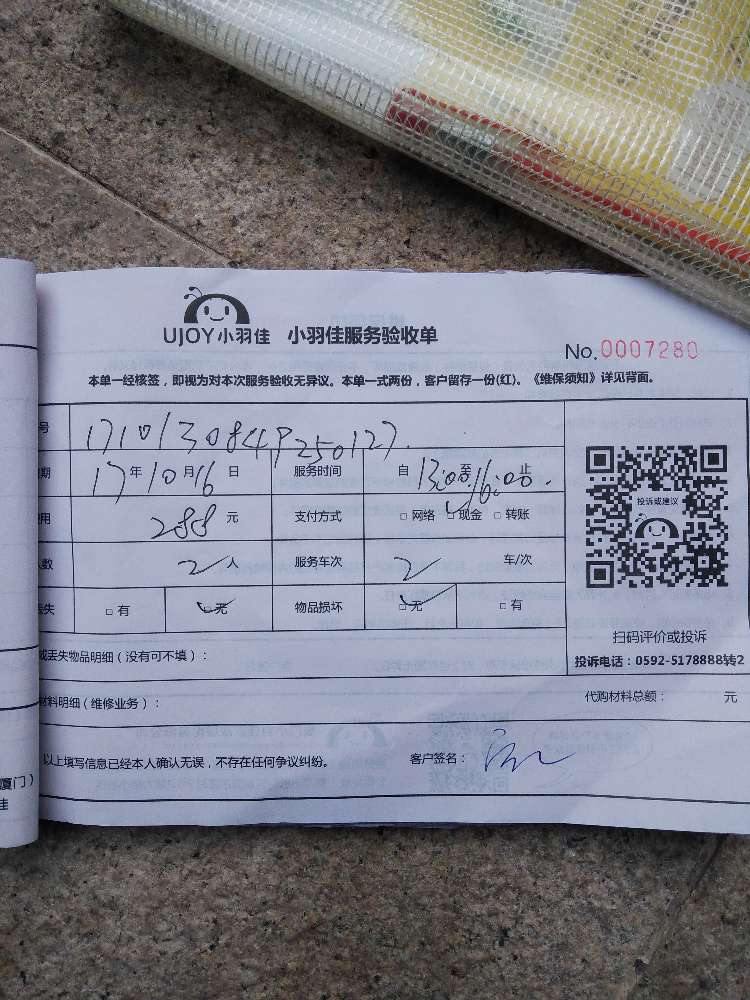 UJOY小羽佳 小羽佳服务验收单
No.0007280
本单一经核签，即视为对本次服务验收无异议。本单一式两份，客户留存一份(红)。《维保须知》详见背面。
号 17101308449250127
期 17年10月16日 服务时间 自13:00至16:00止
用 288元 支付方式 □网络 □现金 □转账
投诉或建议
人数 2人 服务车次 2 车/次
失 □有 □无 物品损坏 □无 □有
扫码评价或投诉
或丢失物品明细（没有可不填）：
投诉电话：0592-5178888转2
材料明细（维修业务）：
代购材料总额： 元
以上填写信息已经本人确认无误，不存在任何争议纠纷。 客户签名：
厦门）
佳